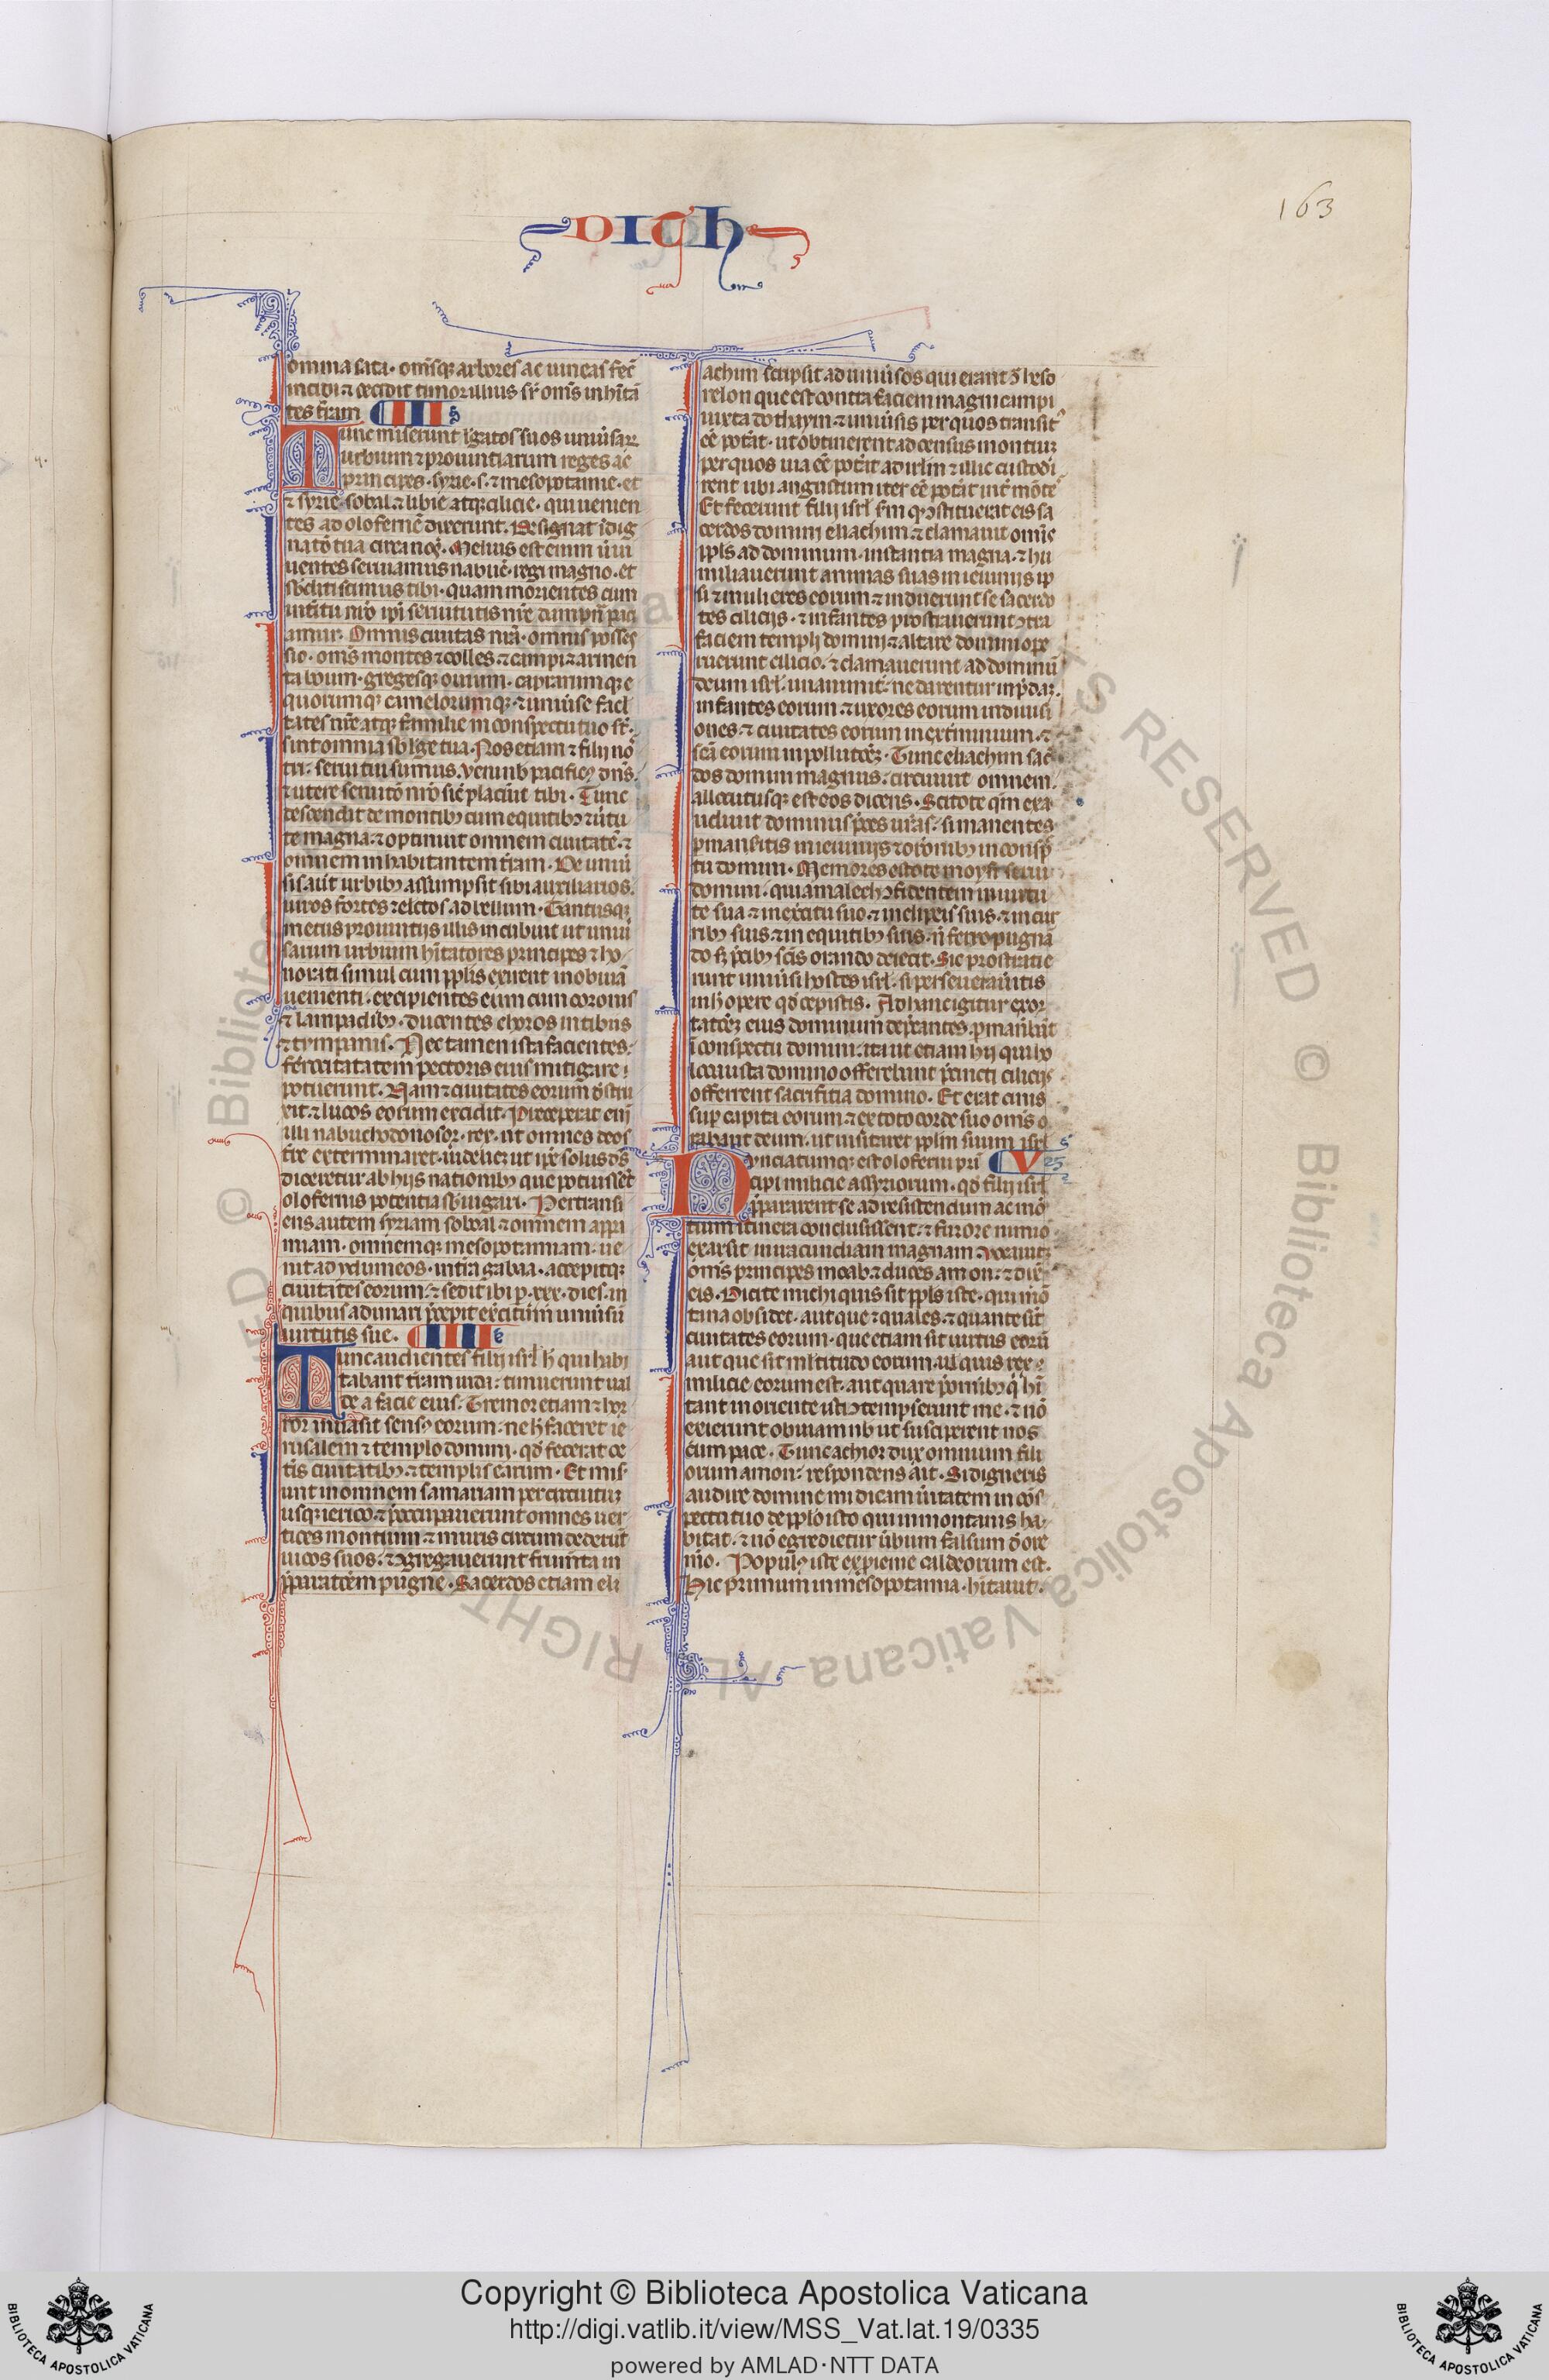 DITH
163
omnia sata · om̄sq; arbores ac uineas fec̄
incidi ⁊ cecidit timor illius sr̄ om̄s inhītā
tes t̄ram IIII
Tunc miserunt legatos suos uniūsarꝝ
urbium ⁊ prouintiarum reges ac
principes · syrie · s · ⁊ mesopotamie · et
⁊ syrie · sobal · ⁊ libie atq; cilicie · qui uenien
tes ad oloferne dixerunt . Designat īdig
natō tua circa nos̄ . Melius est enim ū ui
uentes seruiamus nabuc̄ · regi magno · et
sb̄diti simus tibi · quam morientes cum
interitu nr̄o ip̄i seruitutis nr̄e dampn̄ paci
amur . Omnis ciuitas nr̄a · omnis posses
sio · om̄s montes ⁊ colles · ⁊ campi ⁊ armen
ta boum · gregesq; ouium · caprarumq; e
quorumq; camelorumq; · ⁊ uniūse facl
tates nr̄e atq; familie in conspectu tuo st̄ ·
sint omnia sb̄ lege tua . Nos etiam ⁊ filij no
tri · serui tui sumus . Veni nb̄ pacificꝰ dn̄s ·
⁊ utere seruitō nr̄o sic̄ placūit tibi . Tunc
descendit de montibꝫ cum equitibꝫ ⁊ ūtu
te magna · ⁊ optinuit omnem ciuitatē · ⁊
omnem inhabitantem t̄ram . De uniū
sis aūt urbibꝫ assumpsit sibi auxiliarios ·
uiros fortes ⁊ electos ad bellum . Tantusq;
metus prouintijs illis incubuit ut uniū
sarum urbium hītatores principes ⁊ ho
norati simul cum pp̄lis exirent in obuiā
uenienti · excipientes eum cum coronis
⁊ lampadibꝫ · ducentes choros in tibijs
⁊ tympanis . Nec tamen ista facientes ·
ferocitatatem pectoris eius mitigare
potuerunt . Nam ⁊ ciuitates eorum d̄stru
xit · ⁊ lucos eorum excidit . Preceperat eni
illi nabuchodonosor · rex · ut omnes deos
t̄re exterminaret · uidelicꝫ ut ip̄e solus ds̄
diceretur ab hijs nationibꝫ que potuissēt
olofernis potentia sb̄iugari . Pertransi
ens autem syriam sobal ⁊ omnem appa
miam · omnemq; mesopotamiam · ue
nit ad ydumeos · in t̄ra gabaa · accepitq;
ciuitates eorum · ⁊ sedit ibi p · xxx · dies · in
quibus adunari p̄cepit ex̄citum uniūsū
uirtutis sue . IIII
Tunc audientes filij isrl̄ h̄ qui habi
tabant t̄ram iuda · timuerunt ual
de a facie eius . Tremor etiam ⁊ hor
ror inuasit sensꝰ eorum · ne h̄ faceret ie
rusalem ⁊ templo domini · qd̄ fecerat ce
t̄is ciuitatibꝫ · ⁊ templis earum . Et mis
unt in omnem samariam per circuitū
usq; ierico · ⁊ p̄occupauerunt omnes uer
tices montium · ⁊ muris circumdederūt
uicos suos · ⁊ ↄgregauerunt frum̄ta in
p̄paratōem pugne . Sacerdos etiam eli
achim scripsit ad uniūsos qui erant ↄ̄ hesd
relon que est contra faciem magni campi
iuxta dothaym · ⁊ uniūsis per quos transitꝰ
eē pot̄at · ut obtinerent adcensus montiū
per quos uia eē pot̄at ad irl̄m · ⁊ illic custodi
rent ubi angustum iter eē pot̄at int̄ mōtes
Et fecerunt filij isrl̄ sm̄ qꝫ ↄstituerat eis sa
cerdos domini eliachim · ⁊ clamauit omīs
pp̄ls ad dominum · instantia magna · ⁊ hu
miliauerunt animas suas in ieiunijs ip
si ⁊ mulieres eorum · ⁊ induerunt se sacerdo
tes cilicijs · ⁊ infantes prostrauerunt ↄtra
faciem templi domini ⁊ altare domini ope
ruerunt cilicio · ⁊ clamauerunt ad dominū
deum isrl̄ · unanimit̄ · ne darentur in p̄dā
infantes eorum · ⁊ uxores eorum in diuisi
ones · ⁊ ciuitates eorum in exterminium · ⁊
sc̄a eorum in pollutōeꝫ . Tunc eliachim sac̄
dos domini magnus · circuiuit omnem ·
allocutusq; est eos dicens . Scitote qm̄ exa
udiuit dominus p̄ces ur̄as · si manentes
p̄mansitis in ieiunijs ⁊ orōnibꝫ in consp̄
tu domini . Memores estote moysi serui
domini · qui amalech ↄfidentem in uirtu
te sua · ⁊ in ex̄citu suo · ⁊ in clipeis suis · ⁊ in cur
ribꝫ suis · ⁊ in equitibꝫ suis · n̄ ferro pugnā
do sꝫ p̄cibꝫ sc̄is orando deiecit . Sic prostrati e
runt uniūsi hostes isrl̄ · si perseuerau̅itis
in h̄ opere qd̄ cepistis . Ad hanc igitur exor
tatōeꝫ eius dominum dep̄cantes · p̄manb̄ūt
ī conspectu domini · ita ut etiam hij qui ho
locausta domino offerebant p̄cincti cilicijs
offerrent sacrifitia domino . Et erat cinis
sup̄ capita eorum · ⁊ ex toto corde suo om̄s o
rabant deum · ut uisitaret pp̄lm suum isrl̄
Nunciatumq; est oloferni prī V 25
cipi milicie assyriorum · qd̄ filij isrl̄
p̄pararent se ad resistendum ac mō
tium itinera conclusissent · ⁊ furore nimio
exarsit in iracundiam magnam · uocauitq;
om̄s principes moab · ⁊ duces amon · ⁊ dix̄
eis . Dicite michi quis sit pp̄ls iste · qui mō
tana obsidet · aut que ⁊ quales · ⁊ quante sit
ciuitates eorum · que etiam sit uirtus eorū
aut que sit mltitudo eorum · ul̄ quis rex
milicie eorum est · aut quare p̄ omībꝫ q̄ hī
tant in oriente isti ↄtempserunt me · ⁊ nō
exierunt obuiam nb̄ ut susciperent nos
cum pace . Tunc achior dux omnium fili
orum amon · respondens ait . Si digneris
audire domine mi dicam ūitatem in cōs
pectu tuo de pp̄lo isto qui in montanis ha
bitat · ⁊ nō egredietur ūbum falsum d̄ ore
m̄o . Populꝰ iste ex p̄ienie caldeorum est ·
Hic primum in mesopotamia · hītauit ·
Copyright © Biblioteca Apostolica Vaticana
http://digi.vatlib.it/view/MSS_Vat.lat.19/0335
powered by AMLAD·NTT DATA